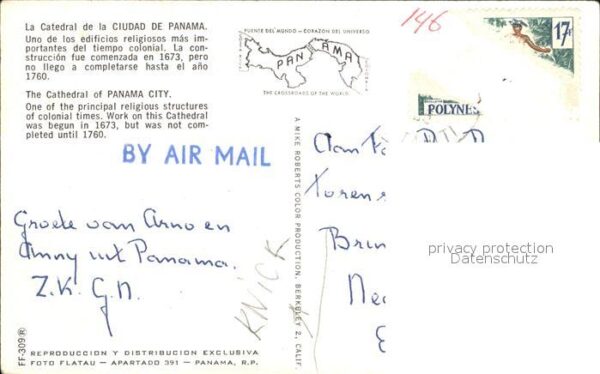 La Catedral de la CIUDAD DE PANAMA.
Uno de los edificios religiosos más im-
portantes del tiempo colonial. La con-
strucción fue comenzada en 1673, pero
no llego a completarse hasta el año
1760.
The Cathedral of PANAMA CITY.
One of the principal religious structures
of colonial times. Work on this Cathedral
was begun in 1673, but was not com-
pleted until 1760.
PUENTE DEL MUNDO — CORAZON DEL UNIVERSO
PANAMA
THE CROSSROADS OF THE WORLD
146
17F
POLYNES
BY AIR MAIL
Groete van Arno en
Anny uit Panama.
Z.K.G.N.
KNICK
A MIKE ROBERTS COLOR PRODUCTION, BERKELEY 2, CALIF.
Aan
Toren
Brin
Ne
privacy protection
Datenschutz
FF-309 ®
REPRODUCCION Y DISTRIBUCION EXCLUSIVA
FOTO FLATAU — APARTADO 391 — PANAMA, R.P.